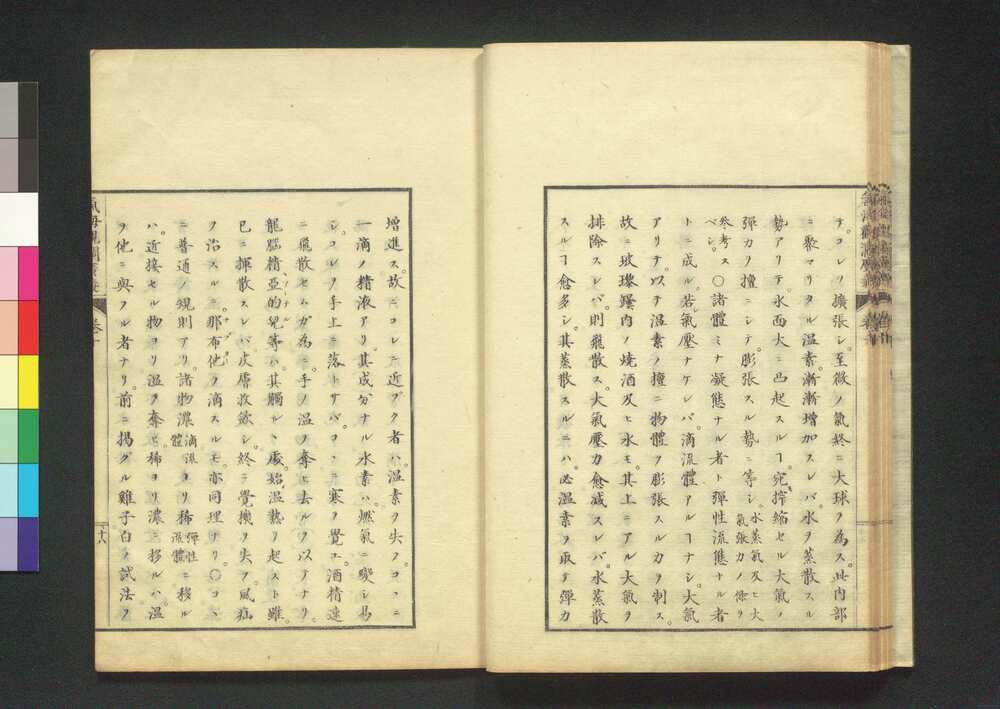 テ、コレヲ擴張シ。至微ノ氣終ニ大球ヲ為ス。此内部
ニ聚マリタル温素。漸漸増加スレバ、水ヲ蒸散スル
勢アリテ。水面大ニ凸起スルヿ。宛搾縮セル大氣ノ
弾力ノ擅ニシテ。膨張スル勢ニ等シ。水蒸氣及ヒ大氣張力ノ條ヲ
参考スベシ。〇諸體ミナ凝態ナル者ト弾性流態ナル者
トニ成ル。若氣壓ナケレバ。滴流體アルヿナシ。大氣
アリテ。以テ温素ノ擅ニ物體ヲ膨張スルカヲ制ス。
故ニ玻瓈鐘内ノ焼酒及ヒ水モ。其上ニアル大氣ヲ
排除スレバ。則飛散ス。大氣壓力愈减スレバ。水蒸散
スルヿ愈多シ。其蒸散スルニハ。必温素ヲ取テ弾力
増進ス。故ニコレニ近ヅク者ハ。温素ヲ失フ。コヽニ
一滴ノ精液アリ。其成分ナル水素ハ。燃氣ニ變シ易
シ。コレヲ手上ニ落トサバ。コヽニ寒ヲ覺ユ。酒精速
ニ飛散セムガ為ニ。手ノ温ヲ奪ヒ去ルヲ以テナリ。
龍脳精亜的兒等ハ。其觸ルヽ處。始温熱ヲ起スト雖。
已ニ揮散スレバ皮膚收斂シ。終ニ覺機ヲ失フ。風疝
ヲ治スルニ。那布他ヲ滴スルモ。亦同理ナリ。〇コヽ
ニ普通ノ規則アリ。諸物濃滴流體ヨリ稀弾性流體ニ移ル
ハ。近接セル物ヨリ温ヲ奪ヒ。稀ヨリ濃ニ移ルハ。温
ヲ他ニ與フル者ナリ。前ニ掲グル雞子白ノ試法ヲ
氣海觀瀾廣義 卷十
十八